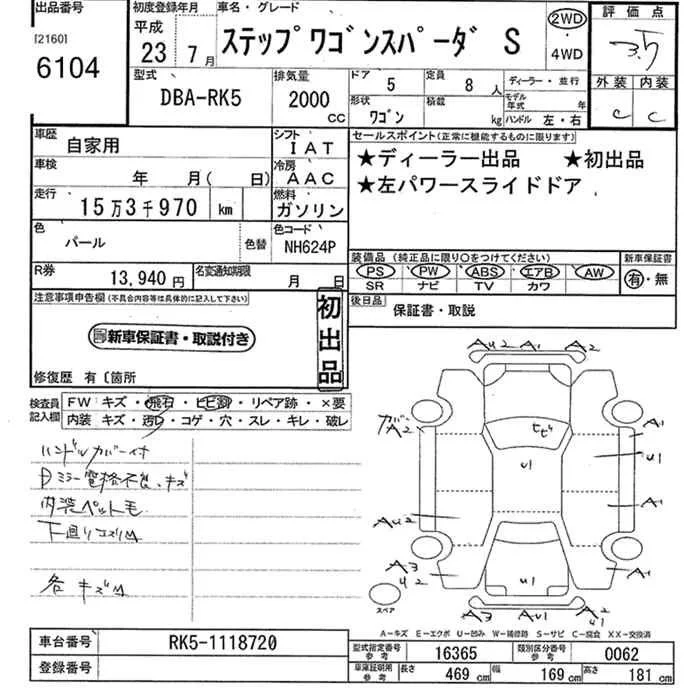 出品番号
[2160]
6104
初度登録年月
平成
23 7月
車名・グレード
ステップワゴンスパーダ S
2WD
・
4WD
評価点
3.5
外装 内装
C C
型式
DBA-RK5
排気量
2000 CC
ドア 5
定員 8 人
形状 ワゴン
積載 kg
ディーラー・並行
モデル年式 年
ハンドル 左・右
車歴 自家用
シフト IAT
車検 年 月( 日)
冷房 AAC
走行 15万3千970 km
燃料 ガソリン
色 パール
色替
色コード NH624P
R券 13,940円
名変通知期限 月 日
セールスポイント(正常に機能するものに限ります)
★ディーラー出品 ★初出品
★左パワースライドドア
装備品(純正品に限り○をつけてください)
PS PW ABS エアB AW
SR ナビ TV カワ
新車保証書
有・無
後日品 保証書・取説
注意事項申告欄(不具合内容等は具体的に記入して下さい)
新車保証書・取説付き
初出品
修復歴 有〔箇所
検査員記入欄
FW キズ・飛石・ヒビ割・リペア跡・×要
内装 キズ・汚れ・コゲ・穴・スレ・キレ・破レ
ハンドルカバー付
Dミラー電格不良、キズ
内装ペット毛
下廻りコスリM
各キズM
AU2 A1 A2
ガバ
A2
ヒビ
A1
U1
U1
A1
AU2
A3
U2
U1
A1
スペア
A3 AU1 A2
U1
A-キズ E-エクボ U-凹み W-補修跡 S-サビ C-腐食 XX-交換済
車台番号 RK5-1118720
登録番号
型式指定番号 参考 16365
類別区分番号 参考 0062
車庫証明用 参考
長さ 469 cm
幅 169 cm
高さ 181 cm